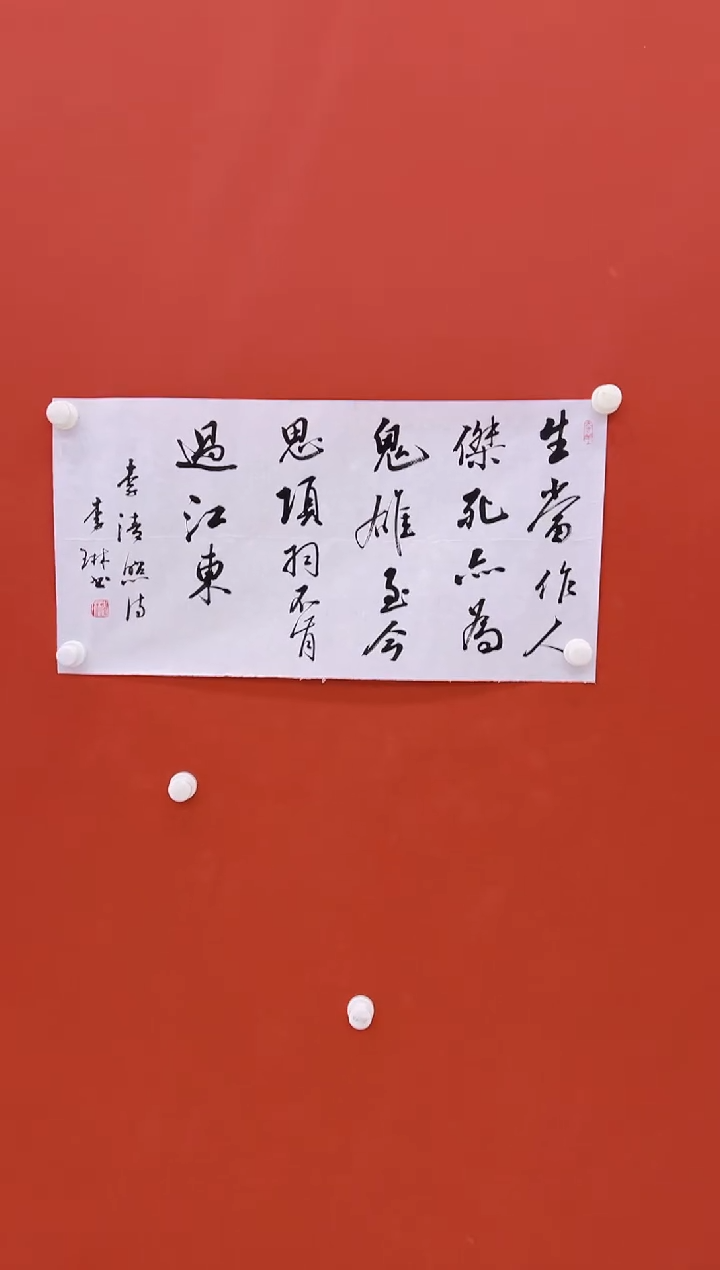 生當作人
傑死亦為
鬼雄至今
思項羽不肯
過江東
李清照诗
李琳书